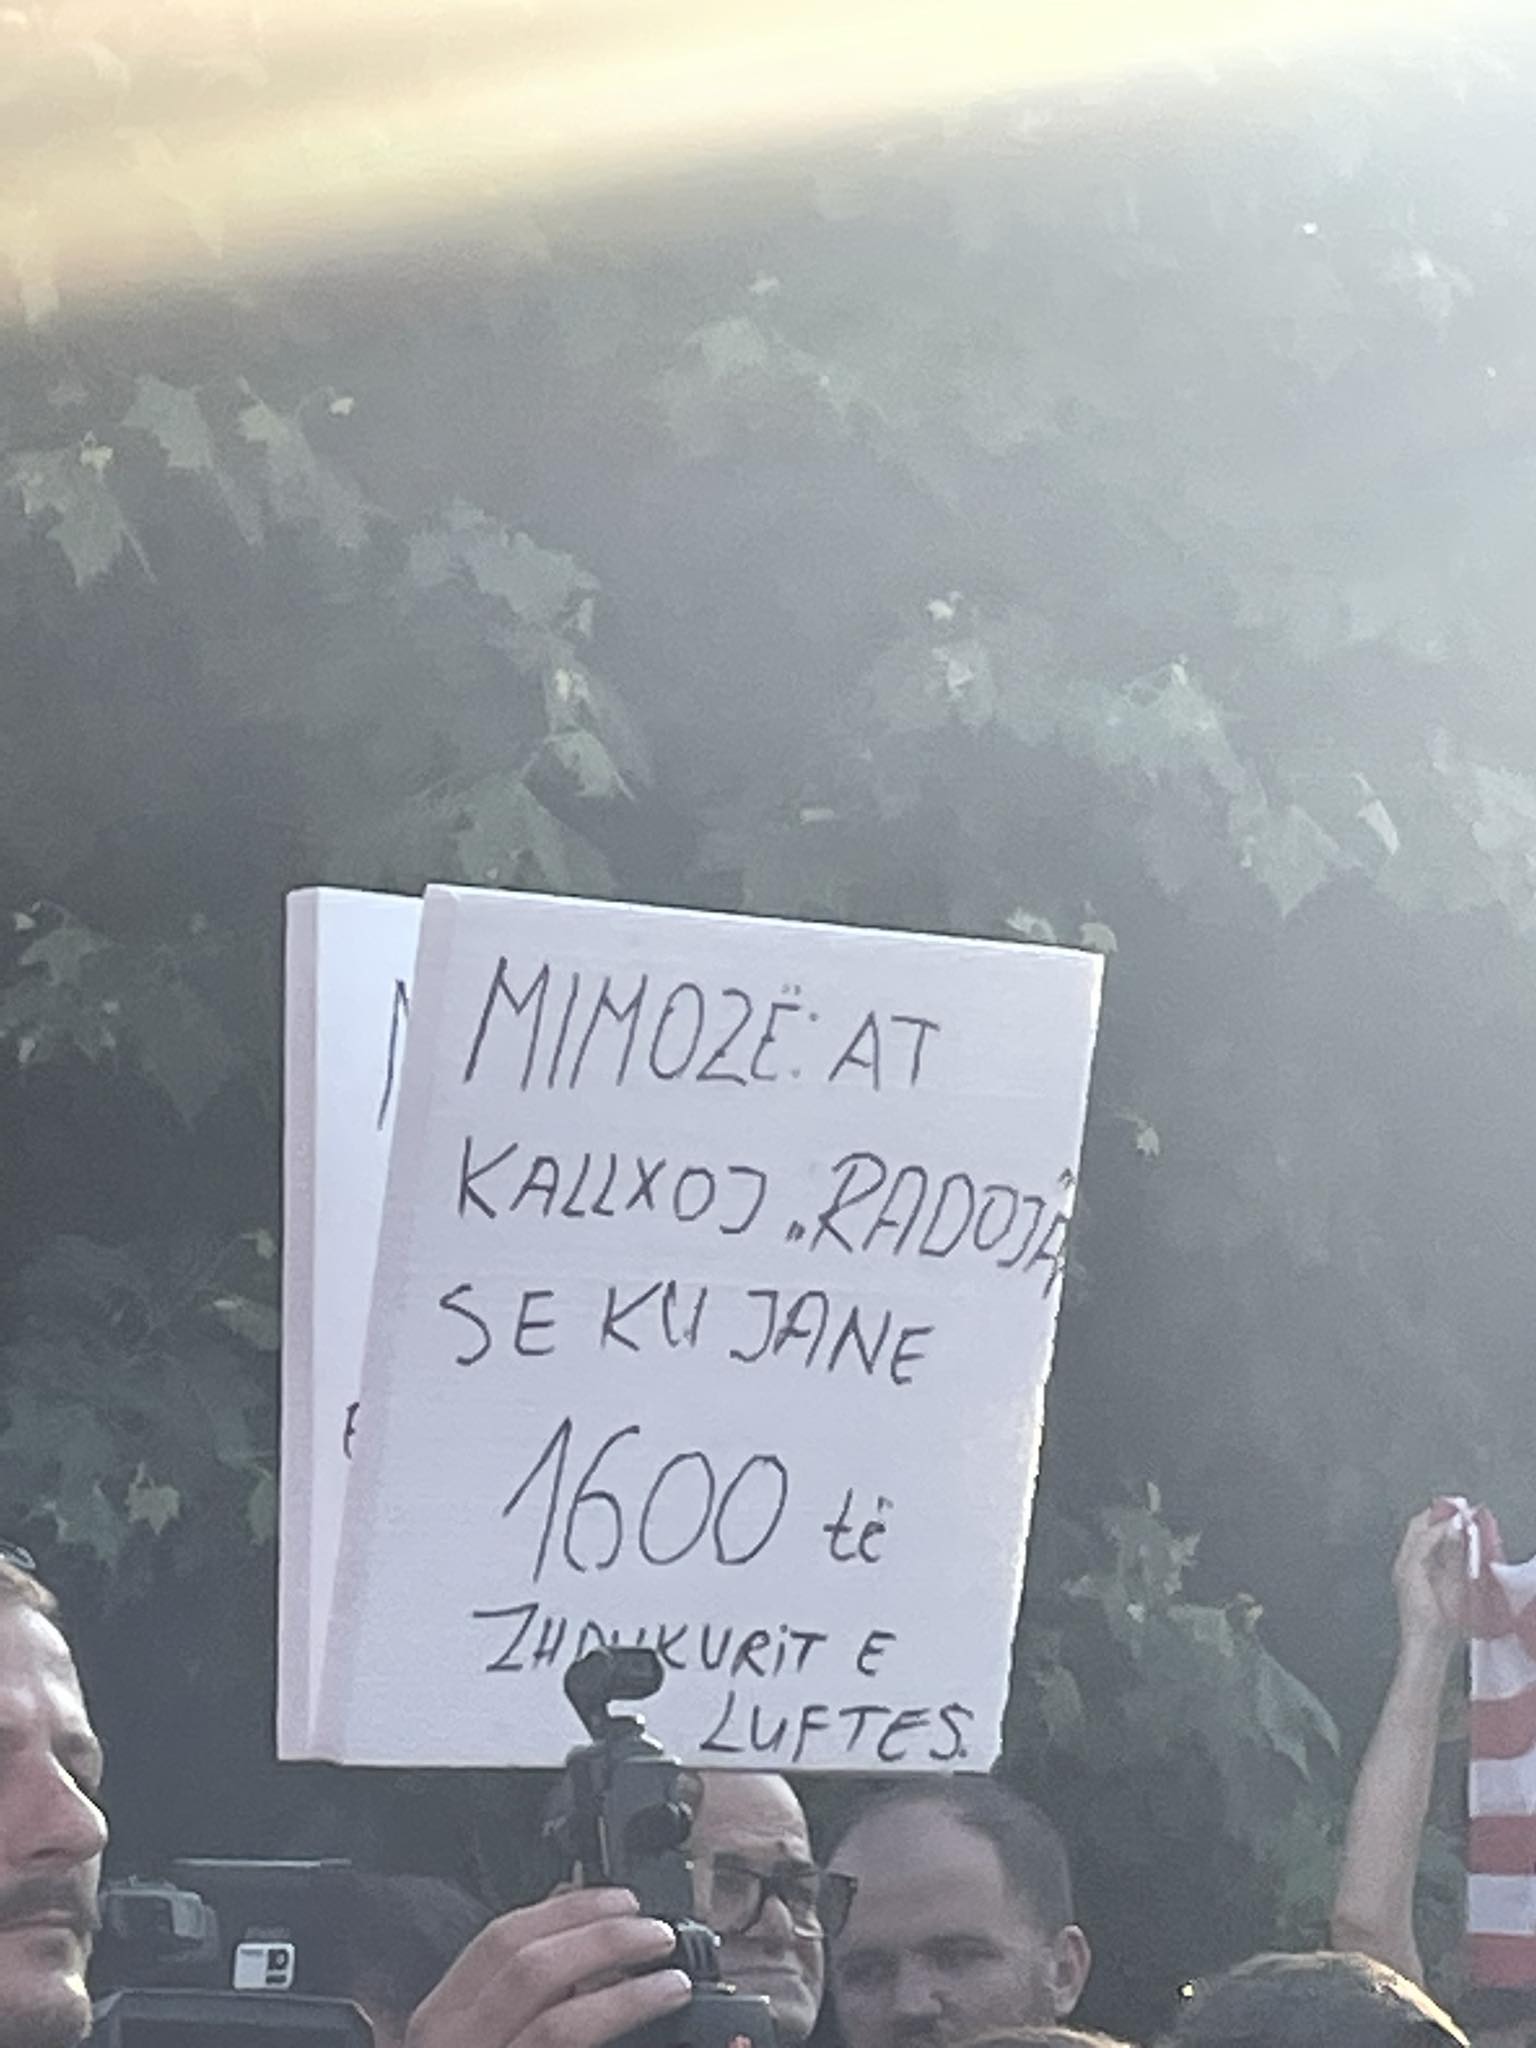 MIMOZË: AT
KALLXOJ „RADOJÄ
SE KU JANE
1600 të
ZHDUKURIT E
LUFTES.